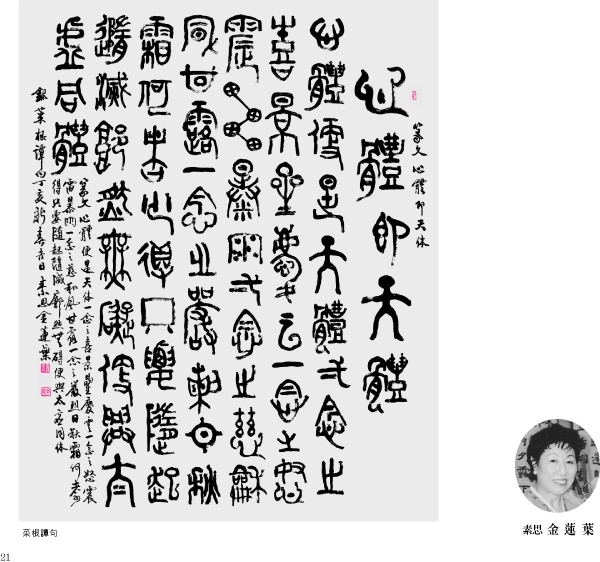 篆文 心體即天体
心體即天體
心體便是天體一念之
喜景星慶雲一念之怒
震雷暴雨一念之慈和
風甘露一念之嚴烈日秋
霜何者少得只要隨起
隨滅廓然無礙便與太
虛同體
篆文 心體便是天体一念之喜景星慶雲一念之怒震
雷暴雨一念之慈和風甘露一念之嚴烈日秋霜何者少
得只要隨起隨滅廓然無碍便與太虛同体
錄菜根譚句丁亥新春吉日 素思金蓮葉
菜根譚句
素思 金蓮葉
21